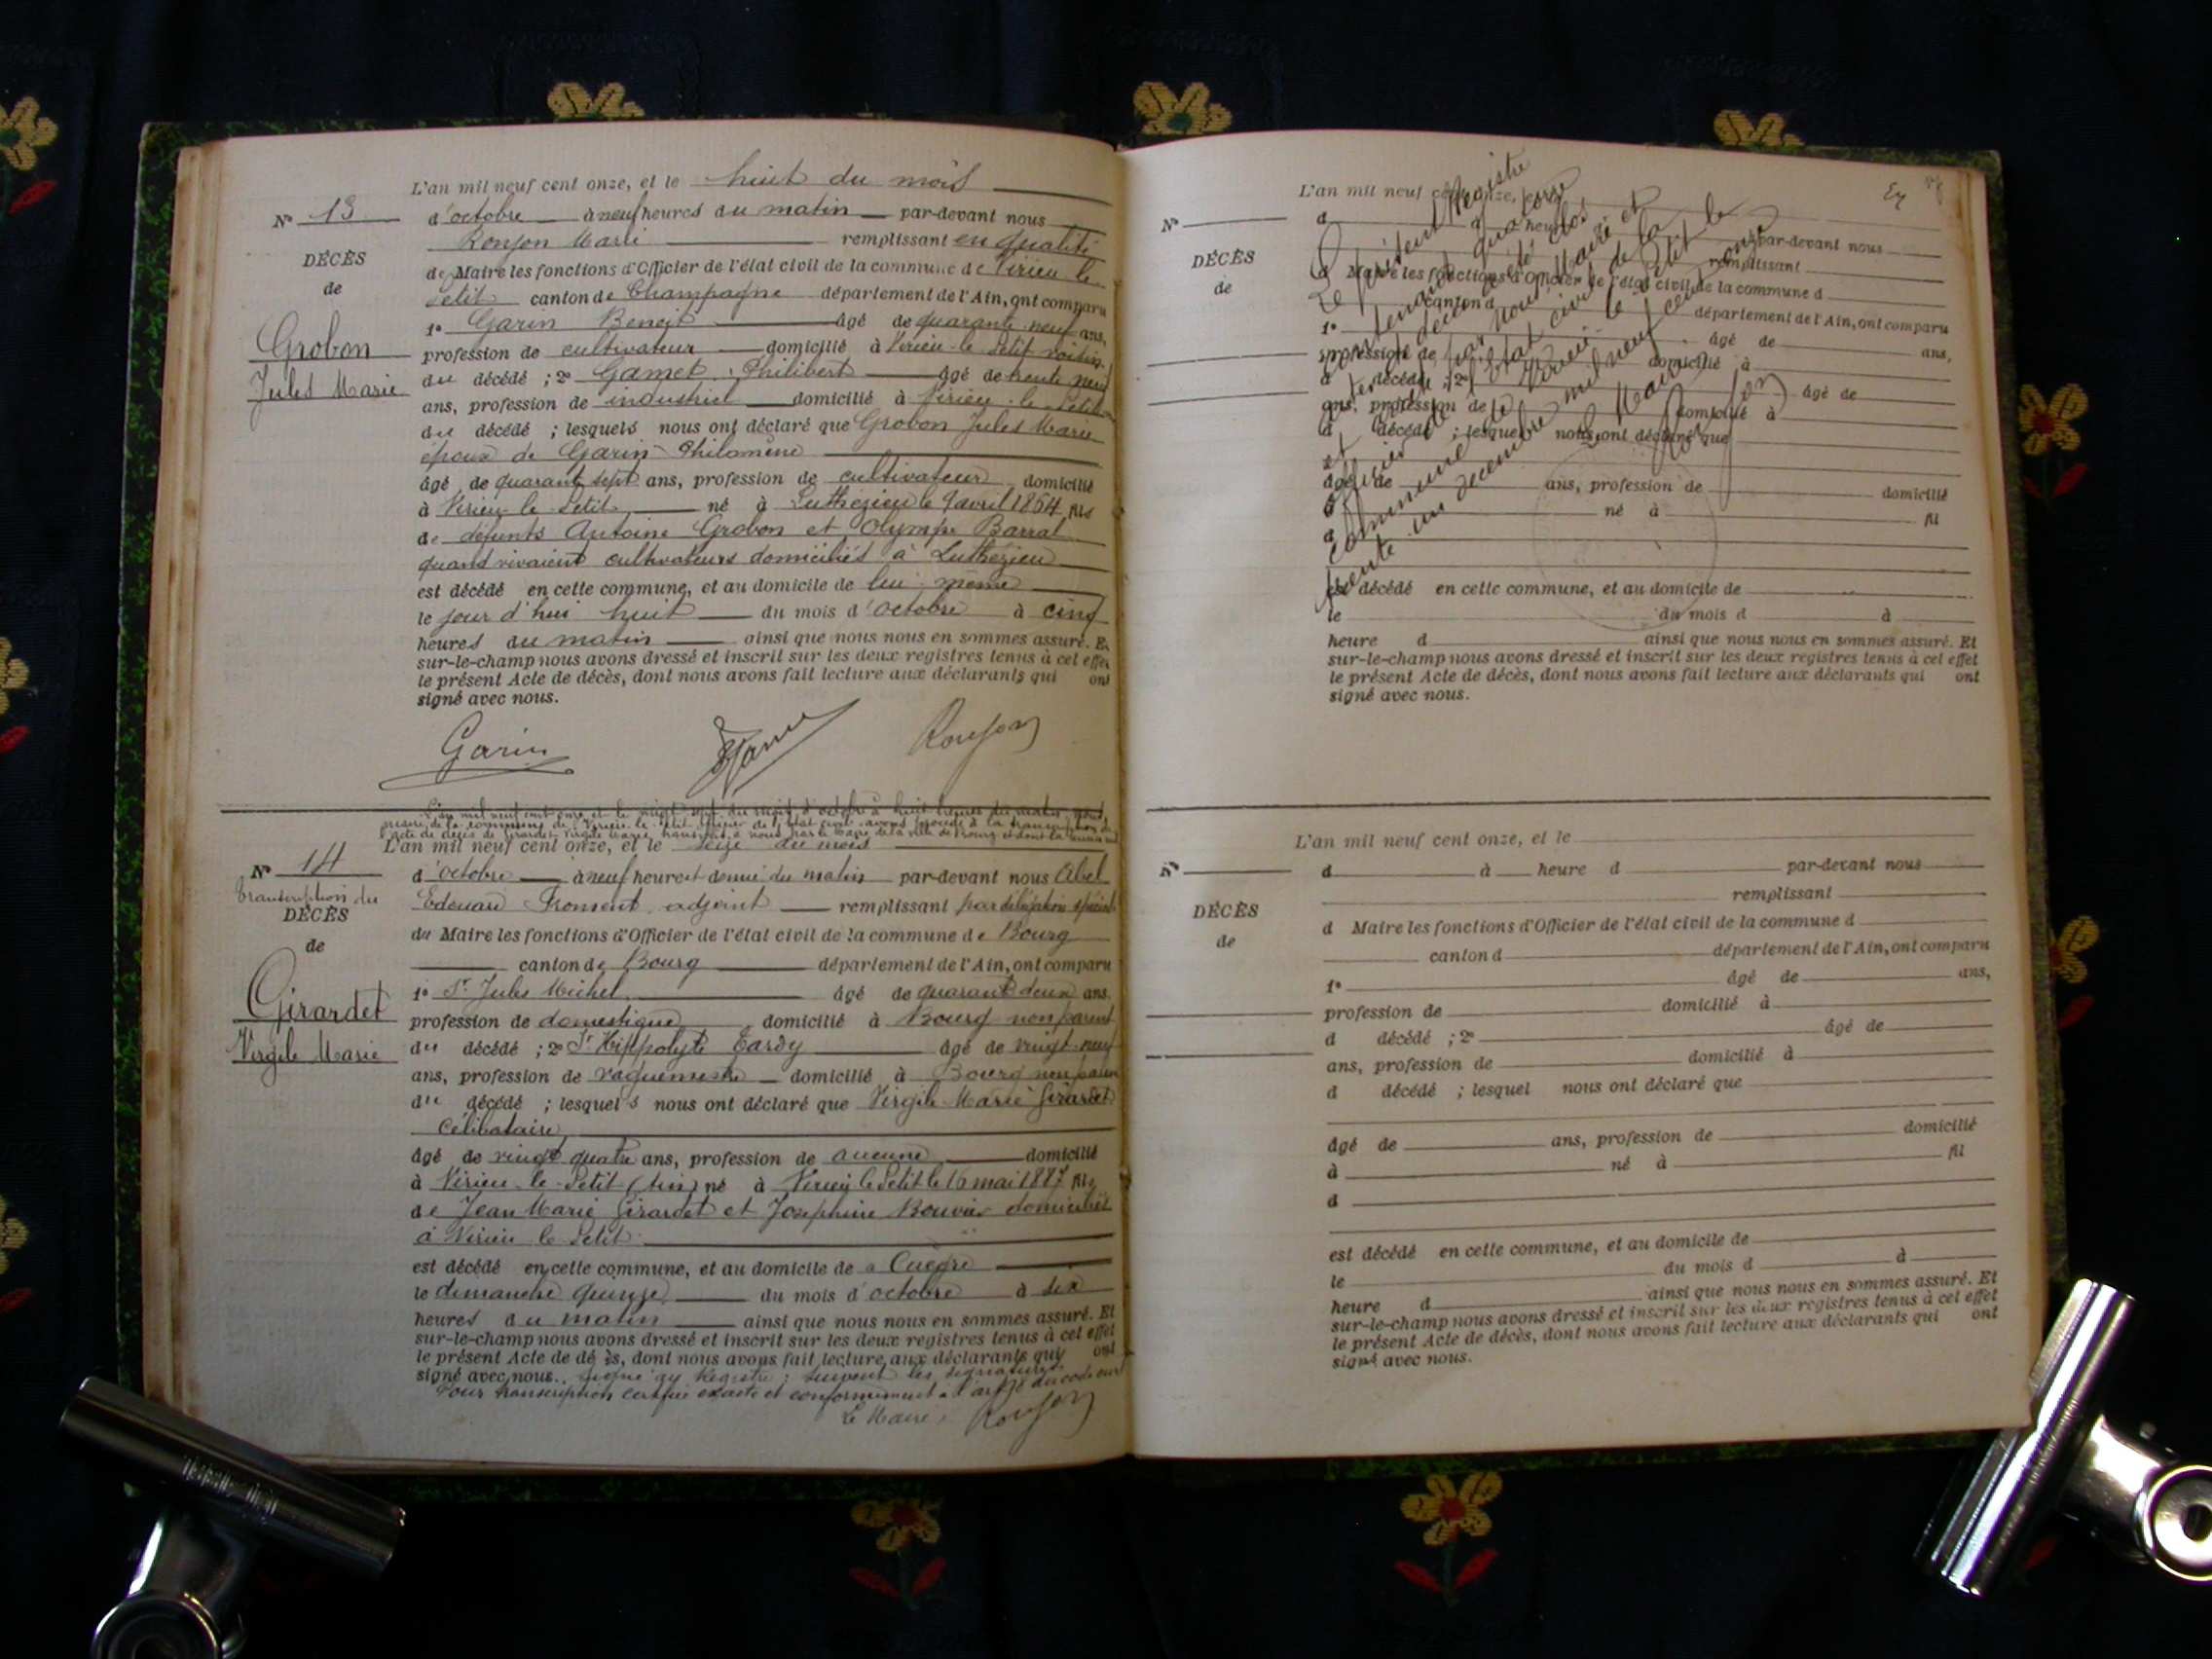 L'an mil neuf cent onze, et le huit du mois
N° 13 d'octobre à neuf heures du matin par-devant nous
Roujon Marie remplissant en qualité
DÉCÈS
de Maire les fonctions d'Officier de l'état civil de la commune de Virieu le
de
Petit canton de Champagne département de l'Ain, ont comparu
1° Garin Benoit âgé de quarante neuf ans,
Grobon
profession de cultivateur domicilié à Virieu-le-Petit voisin
Jules Marie
du décédé ; 2° Gamet Philibert âgé de trente neuf
ans, profession de industriel domicilié à Virieu-le-Petit
du décédé ; lesquels nous ont déclaré que Grobon Jules Marie
époux de Garin Philomène
âgé de quarante sept ans, profession de cultivateur domicilié
à Virieu-le-Petit né à Luthézieu le 9 avril 1864 fils
de défunts Antoine Grobon et Olympe Barral
quand vivaient cultivateurs domiciliés à Luthézieu
est décédé en cette commune, et au domicile de lui-même
le jour d'hui huit du mois d'octobre à cinq
heures du matin ainsi que nous nous en sommes assuré. Et
sur-le-champ nous avons dressé et inscrit sur les deux registres tenus à cet effet
le présent Acte de décès, dont nous avons fait lecture aux déclarants qui ont
signé avec nous.
Garin Roujon
L'an mil neuf cent onze et le vingt sept du mois d'octobre à huit heures du matin, nous,
maire de la commune de Virieu-le-Petit officier de l'état civil avons procédé à la transcription de
l'acte de décès de Girardet Virgile Marie, transmis à nous par le Maire de la ville de Bourg et dont la teneur suit
L'an mil neuf cent onze, et le seize du mois
N° 14
d'octobre à neuf heures et demie du matin par-devant nous Abel
Transcription du
DÉCÈS
Edouard Froment, adjoint remplissant par délégation spéciale
de
du Maire les fonctions d'Officier de l'état civil de la commune de Bourg
canton de Bourg département de l'Ain, ont comparu
Girardet
1° Sr Jules Michel âgé de quarante deux ans.
profession de domestique domicilié à Bourg non parent
Virgile Marie
du décédé ; 2° Sr Hippolyte Tardy âgé de vingt-neuf
ans, profession de vaguemestre domicilié à Bourg non parent
du décédé ; lesquels nous ont déclaré que Virgile Marie Girardet
Célibataire
âgé de vingt quatre ans, profession de aucune domicilié
à Virieu-le-Petit (Ain) né à Virieu le Petit le 16 mai 1887 fils
de Jean Marie Girardet et Joséphine Bouvier domiciliés
à Virieu le Petit
est décédé en cette commune, et au domicile de a Cuègre
le dimanche quinze du mois d'octobre à six
heures du matin ainsi que nous nous en sommes assuré. Et
sur-le-champ nous avons dressé et inscrit sur les deux registres tenus à cet effet
le présent Acte de dé ès, dont nous avons fait lecture aux déclarants qui ont
signé avec nous. signé au Registre ; suivent les signatures.
Pour transcription certifiée exacte et conformément à l'art du code civil
Le Maire, Roujon
L'an mil neuf cent onze, et le
N° d à heure
DÉCÈS
de
par-devant nous
remplissant
d Maire les fonctions d'Officier de l'état civil de la commune d
canton d département de l'Ain, ont comparu
1° âgé de ans,
profession de domicilié à
d décédé ; 2° âgé de
ans, profession de domicilié à
d décédé ; lesquel nous ont déclaré que
âgé de ans, profession de domicilié
à né à fil
d
est décédé en cette commune, et au domicile de
le du mois d à
heure d ainsi que nous nous en sommes assuré. Et
sur-le-champ nous avons dressé et inscrit sur les deux registres tenus à cet effet
le présent Acte de décès, dont nous avons fait lecture aux déclarants qui ont
signé avec nous.
Le présent Registre
contenant quatorze
décès a été clos
et par nous Maire et
officier de l'état civil de la
commune de Virieu-le-Petit le
trente un décembre mil neuf cent onze
Le Maire
Roujon
L'an mil neuf cent onze, et le
N° d à heure d par-devant nous
remplissant
DÉCÈS
d Maire les fonctions d'Officier de l'état civil de la commune d
de
canton d département de l'Ain, ont comparu
1° âgé de ans,
profession de domicilié à
d décédé ; 2° âgé de
ans, profession de domicilié à
d décédé ; lesquel nous ont déclaré que
âgé de ans, profession de domicilié
à né à fil
d
est décédé en cette commune, et au domicile de
le du mois d à
heure d ainsi que nous nous en sommes assuré. Et
sur-le-champ nous avons dressé et inscrit sur les deux registres tenus à cet effet
le présent Acte de décès, dont nous avons fait lecture aux déclarants qui ont
signé avec nous.